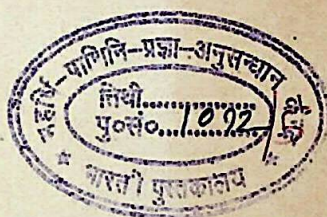 महर्षि-पाणिनि-प्रज्ञा-अनुसन्धान
तिथी..............
पु०सं०....1092....
* भारती पुस्तकालय *